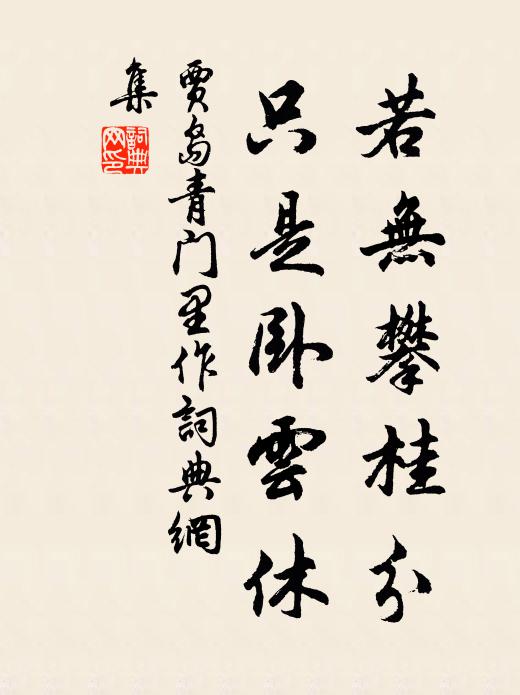 若無攀桂分
只是卧雲休
賈島青门里作詞典網
集
詞典
网印